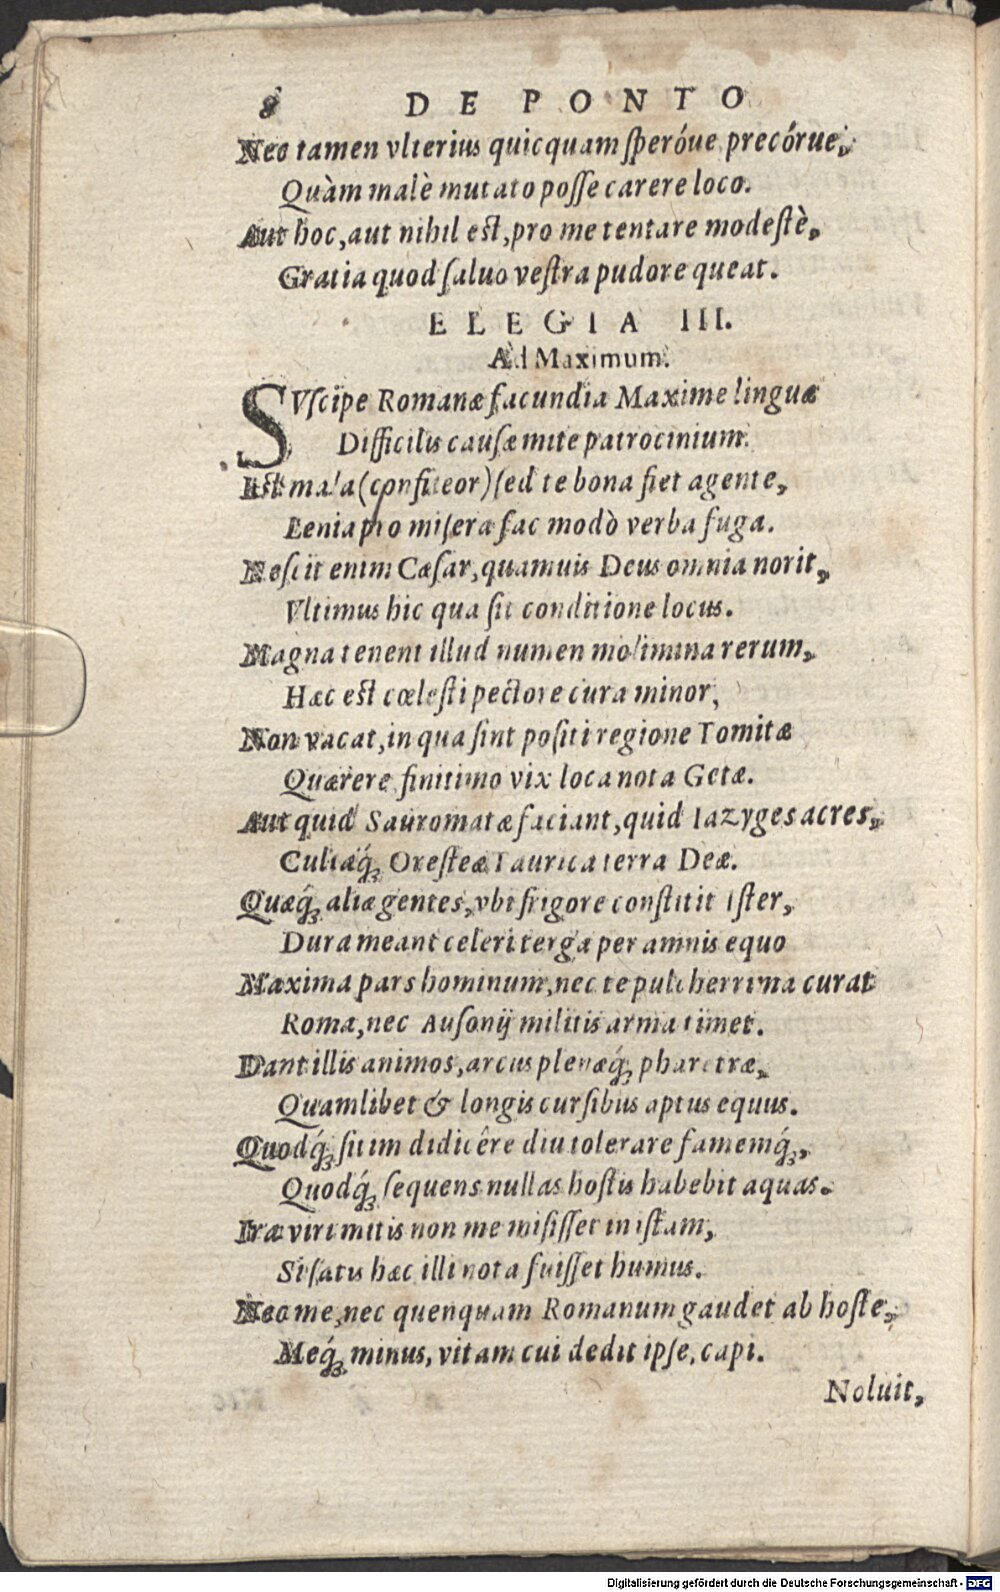 8 DE PONTO
Nec tamen vlterius quicquam ſperóue precórue,
Quàm malè mutato poſſe carere loco.
Aut hoc, aut nihil est, pro me tentare modeſtè,
Gratia quod ſaluo veſtra pudore queat.
ELEGIA III.
Ad Maximum.
SVſcipe Romanæ facundia Maxime linguæ
Difficilis cauſæ mite patrocinium.
Est mala (confiteor) ſed te bona fiet agente,
Lenia pro miſera fac modò verba fuga.
Neſcit enim Cæſar, quamuis Deus omnia norit,
Vltimus hic qua ſit conditione locus.
Magna tenent illud numen molimina rerum,
Hæc est cœleſti pectore cura minor,
Non vacat, in qua ſint poſiti regione Tomitæ
Quærere, finitimo vix loca nota Getæ.
Aut quid Sauromatæ faciant, quid Iazyges acres,
Cultaq́ꝫ Oreſteæ Taurica terra Deæ.
Quæq́ꝫ aliæ gentes, vbi frigore conſtitit Iſter,
Dura meant celeri terga per amnis equo
Maxima pars hominum, nec te pulcherrima curat
Roma, nec Auſonij militis arma timet.
Dant illis animos, arcus plenæq́ꝫ pharetræ,
Quamlibet & longis curſibus aptus equus.
Quodq́ꝫ ſitim didicêre diu tolerare famemq́ꝫ,
Quodq́ꝫ ſequens nullas hoſtis habebit aquas.
Iræ viri mitis non me miſiſſet in iſtam,
Si ſatis hæc illi nota fuiſſet humus.
Nec me, nec quenquam Romanum gaudet ab hoſte,
Meq́ꝫ minus, vitam cui dedit ipſe, capi.
Noluit,
Digitalisierung gefördert durch die Deutsche Forschungsgemeinschaft - DFG